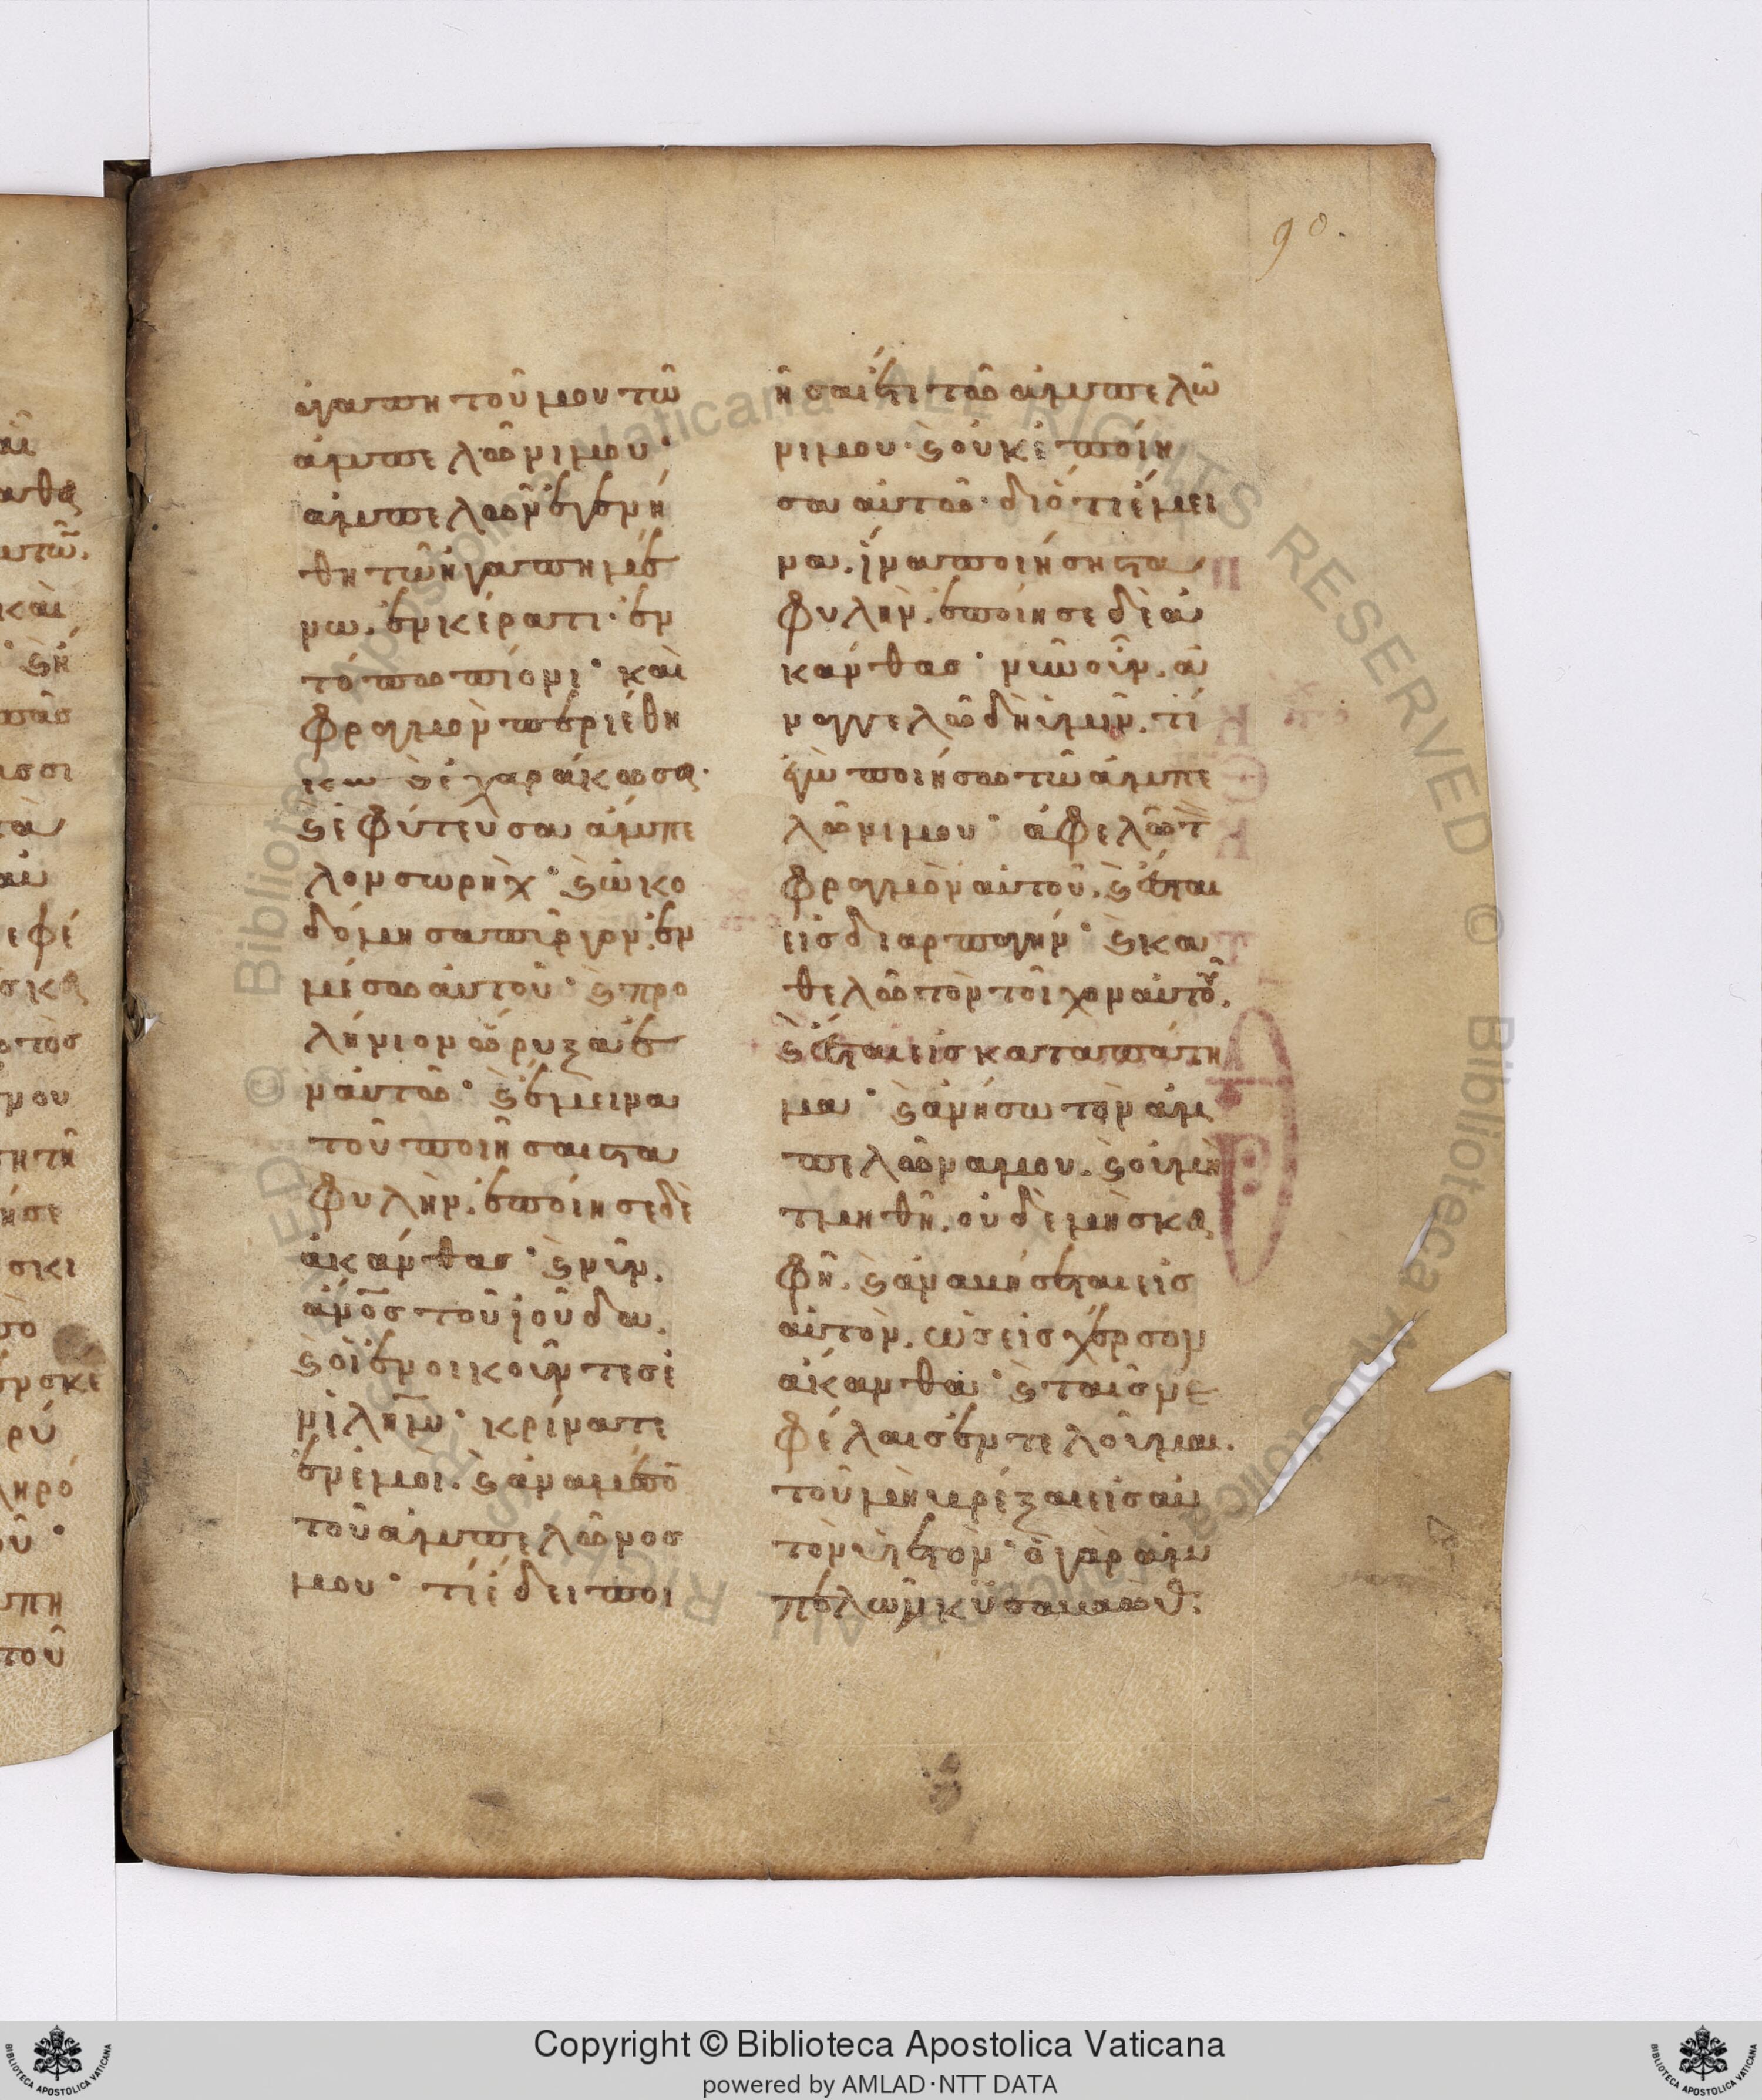 90.
αγαπητοῦ μου τῶ
ἀμπελῶνι μου·
ἀμπελὼν ἐγενή
θη τῶ ἠγαπημέ
νω. ἐν κέρατι· ἐν
τόπω πίονι· καὶ
φραγμὸν περιέθη
κα ϗ ἐχαράκωσα·
ϗ ἐφύτευσα ἄμπε
λον σωρὴχ· ϗ ὠκο
δόμησα πύργον, ἐν
μέσω αὐτοῦ· ϗ προ
λήνιον ὤρυξα ἐ
ν αὐτῶ· ϗ ἔμεινα
τοῦ ποιῆσαι στα
φυλὴν. ἐποίησε δὲ
ἀκάνθας· ϗ νῦν.
ἄνο̅ς τοῦ ἰούδα.
ϗ οἱ ἐνοικοῦντες ἐ
ν ἰλη̅μ· κρίνατε
ἐν ἐμοὶ. ϗ ἀναμέσο
τοῦ ἀμπελῶνος
μου· τί ἔδει ποι
ῆσαι ἔτι τῶ ἀμπελῶ
νι μου· ϗ οὐκ ἐποίη
σα αὐτῶ· διότι ἔμει
να. ἵνα ποιήση στα
φυλὴν. ἐποίησε δὲ ἀ
κάνθας· νῦν οὖν. ἀ
ναγγελῶ δὴ ὑμῖν. τί
ἐγὼ ποιήσω τῶ ἀμπε
λῶνι μου· ἀφελῶ τ
φραγμὸν αὐτοῦ. ϗ ἔσται
εἰς διαρπαγήν· ϗ κα
θελῶ τὸν τοῖχον αὐτοῦ.
ϗ ἔσται εἰς καταπάτη
μα· ϗ ἀνήσω τὸν ἀμ
πελῶνα μου. ϗ οὐ μὴ
τμηθῆ. οὐδὲ μὴ σκα
φῆ. ϗ ἀναβήσεται εἰς
αὐτὸν. ὡς εἰς χέρσον
ἄκανθα· ϗ ταῖς νε
φέλαις ἐντελοῦμαι.
τοῦ μὴ βρέξαι εἰς αὐ
τὸν ὑετὸν· ὁ γὰρ ἀμ
πελὼν κυ̅ σαβαώθ:
Copyright © Biblioteca Apostolica Vaticana
powered by AMLAD·NTT DATA